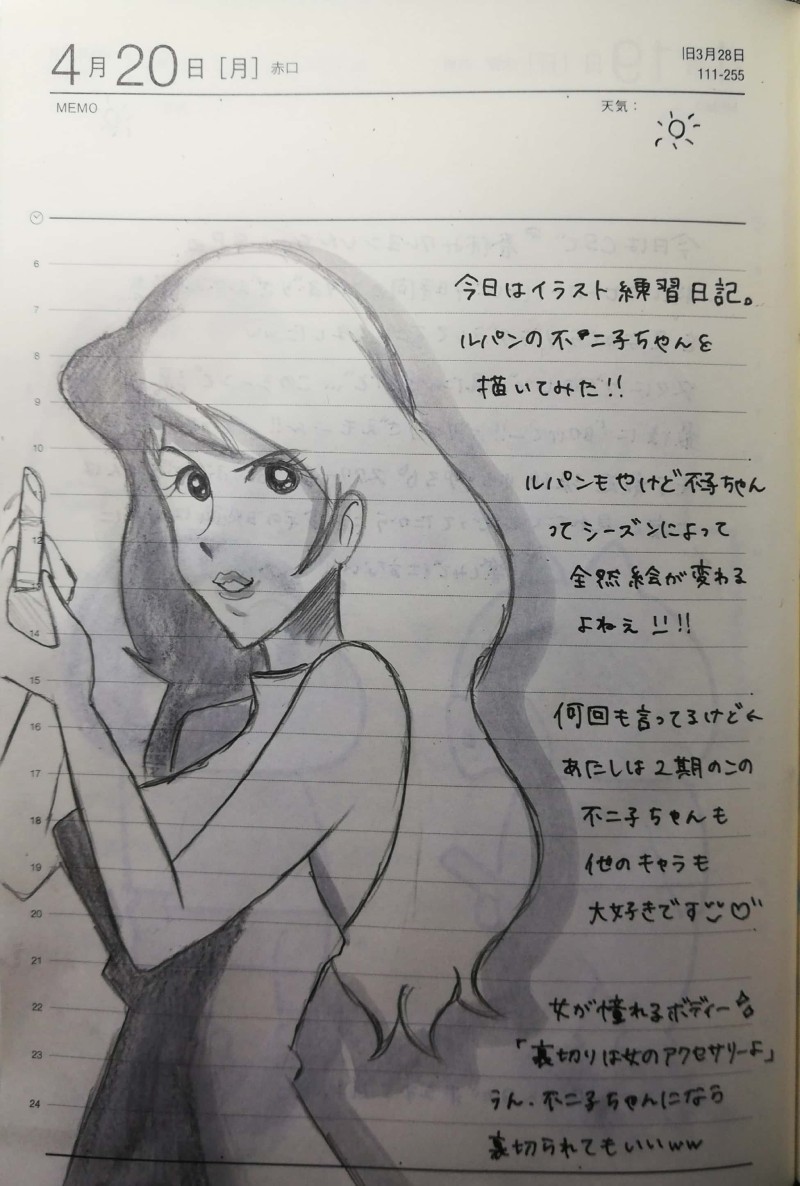 4月20日[月] 赤口
旧3月28日
111-255
MEMO
天気：
6
7
8
9
10
12
14
15
16
17
18
19
20
21
22
23
24
今日はイラスト練習日記。
ルパンの不二子ちゃんを
描いてみた!!
ルパンもやけど不二子ちゃん
ってシーズンによって
全然絵が変わる
よねぇ!!!
何回も言ってるけど←
あたしは2期のこの
不二子ちゃんも
他のキャラも
大好きです♡
女が憧れるボディー☆
「裏切りは女のアクセサリーよ」
うん、不二子ちゃんになら
裏切られてもいいww